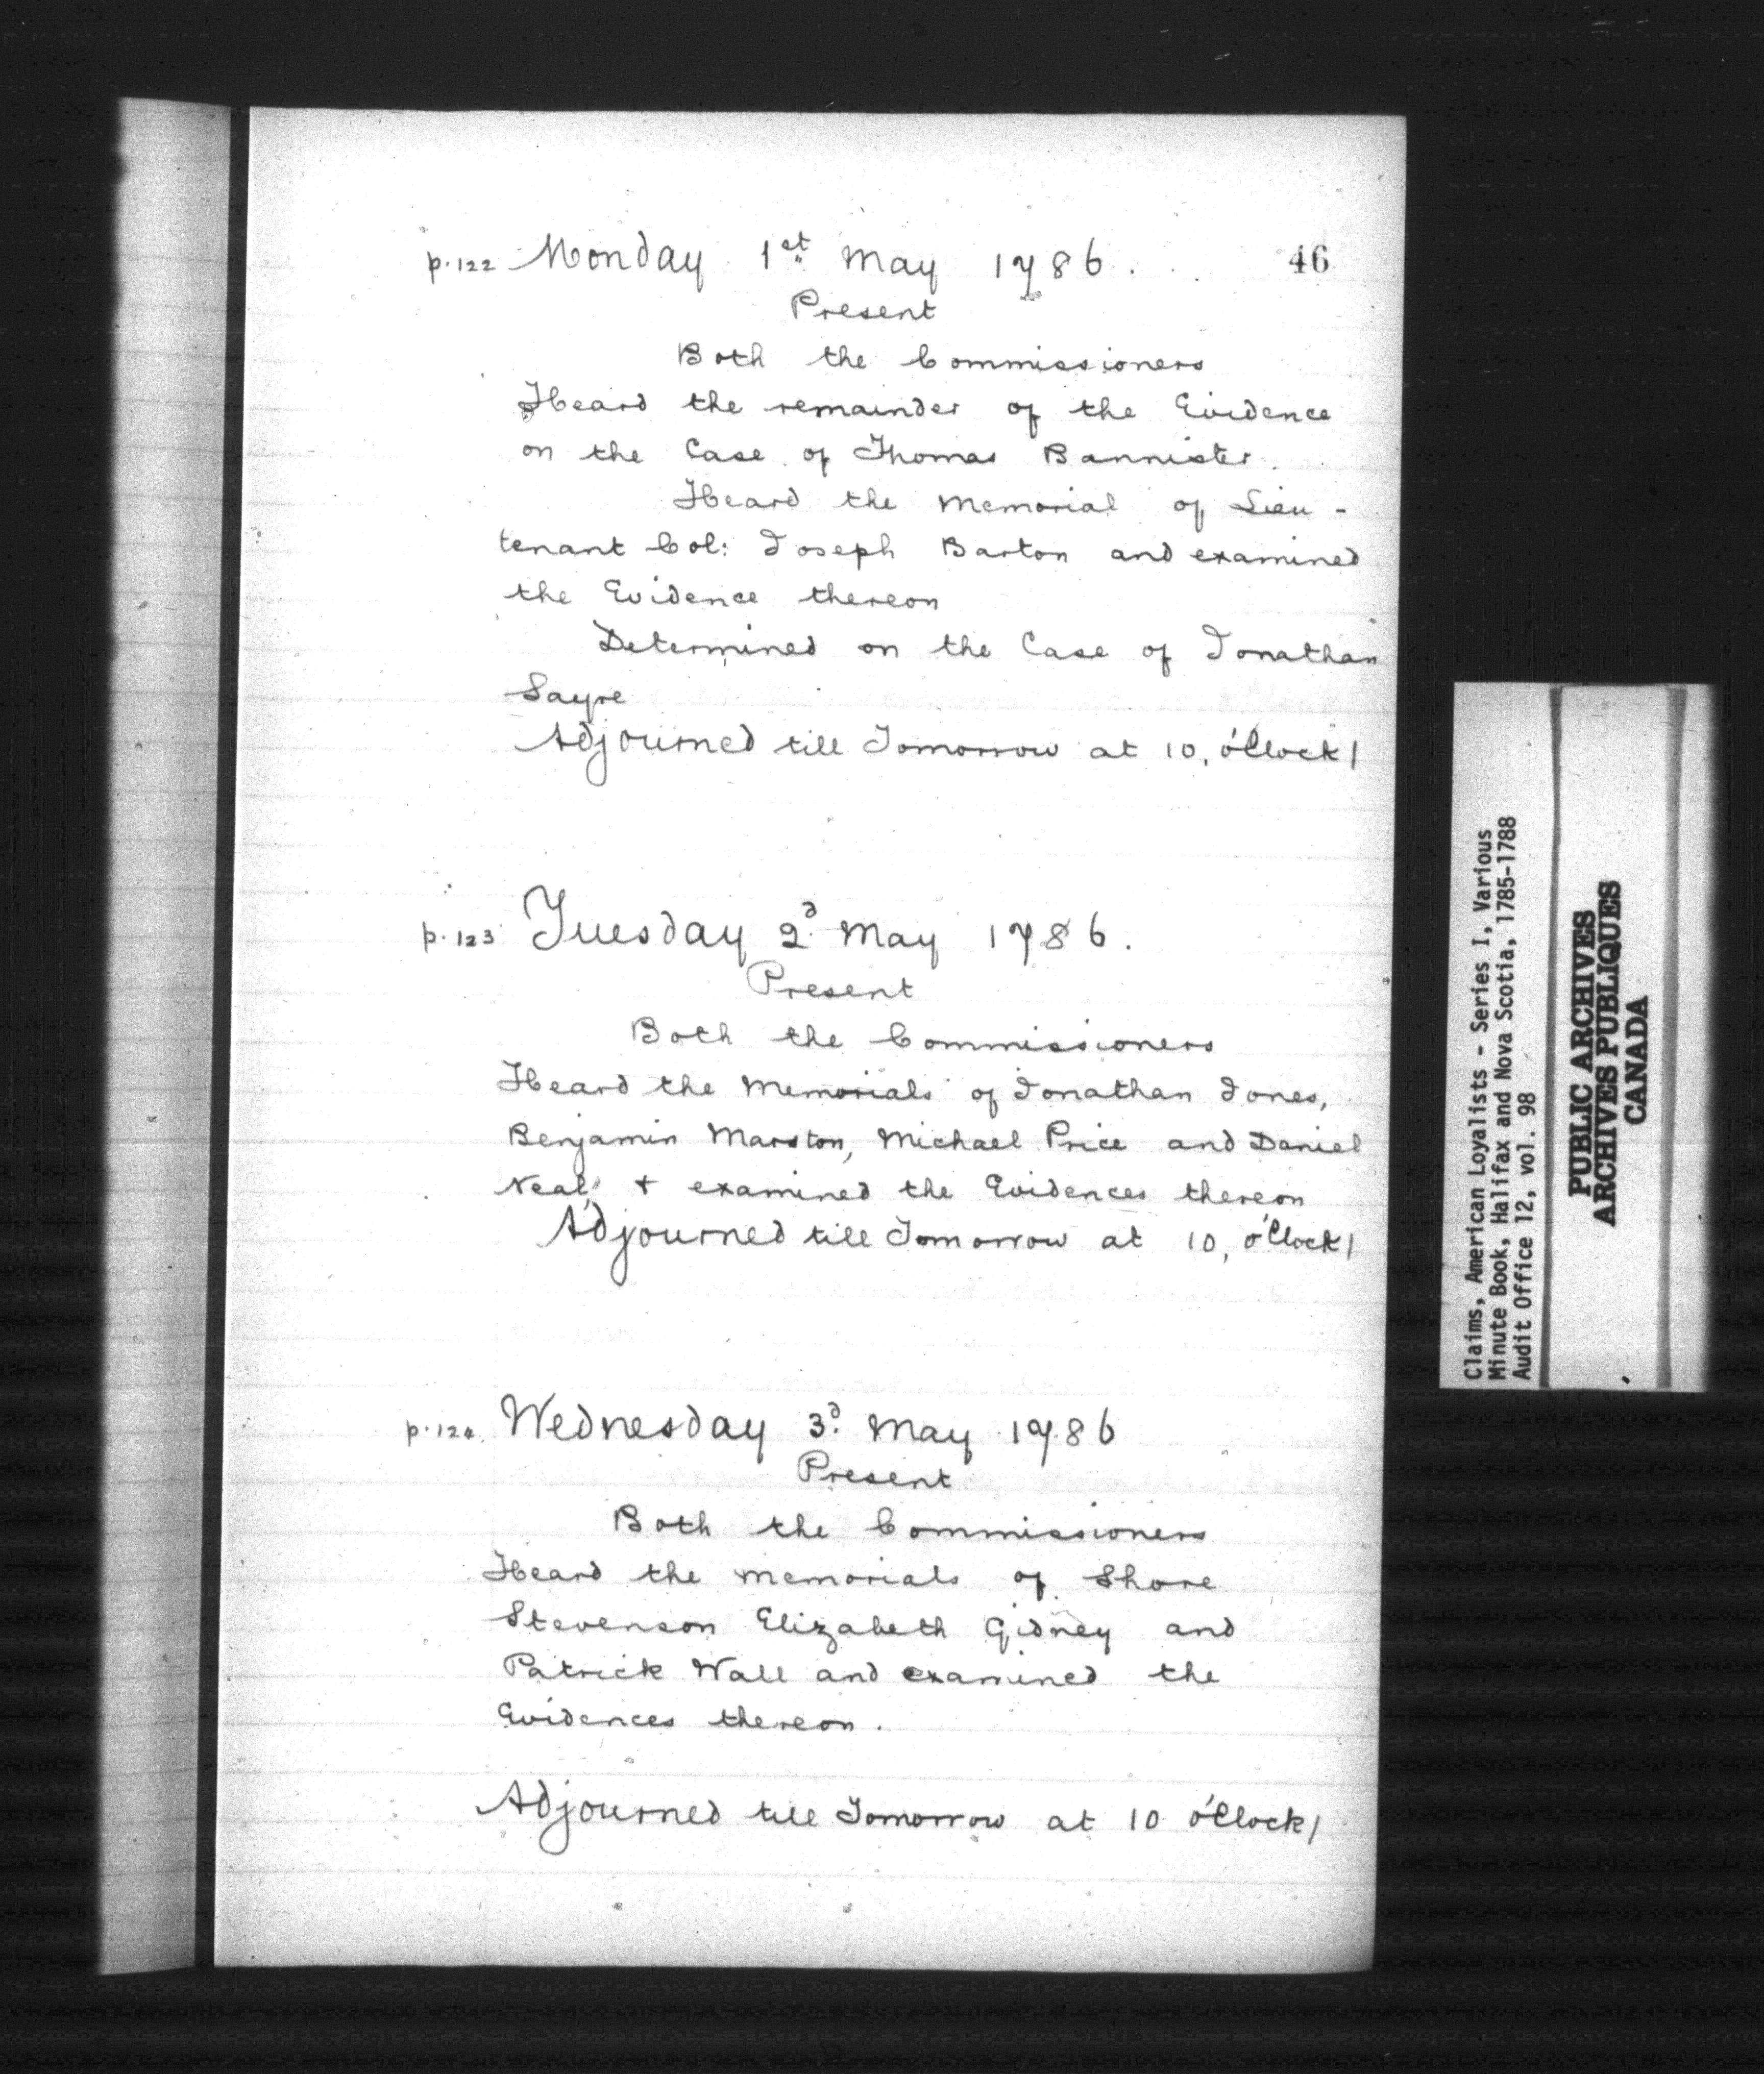 p. 122 Monday 1st May 1786.
46
Present
Both the Commissioners
Heard the remainder of the Evidence
on the Case of Thomas Bannister.
Heard the Memorial of Lieu-
tenant Col: Joseph Barton and examined
the Evidence thereon
Determined on the Case of Jonathan
Sayre
Adjourned till Tomorrow at 10, o'Clock/
p. 123 Tuesday 2d May 1786.
Present
Both the Commissioners
Heard the Memorials of Jonathan Jones,
Benjamin Marston, Michael Price and Daniel
Neal, + examined the Evidences thereon
Adjourned till Tomorrow at 10, o'Clock/
p. 124. Wednesday 3d May 1786
Present
Both the Commissioners
Heard the Memorials of Shore
Stevenson Elizabeth Gidney and
Patrick Wall and examined the
Evidences thereon.
Adjourned till Tomorrow at 10 o'Clock/
Claims, American Loyalists - Series I, Various
Minute Book, Halifax and Nova Scotia, 1785-1788
Audit Office 12, vol. 98
PUBLIC ARCHIVES
ARCHIVES PUBLIQUES
CANADA